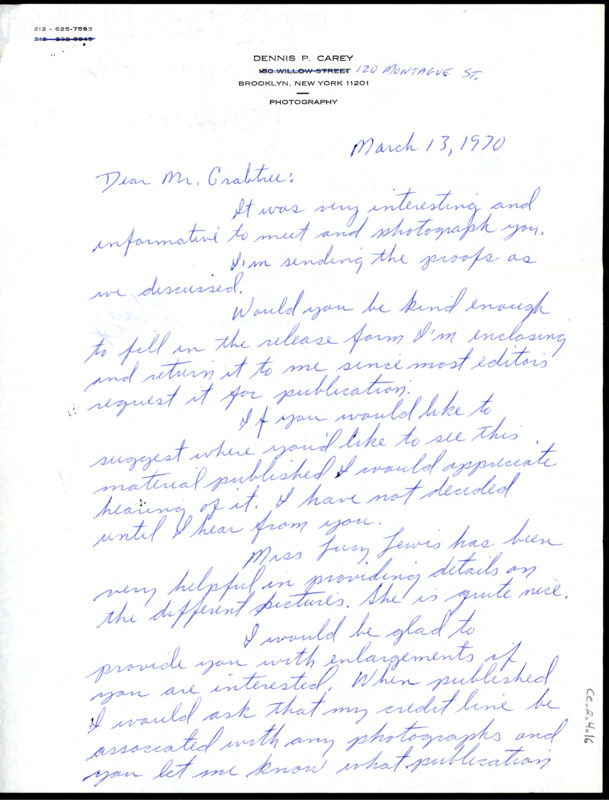 212 - 625-7593
DENNIS P. CAREY
150 WILLOW STREET 120 MONTAGUE ST.
BROOKLYN, NEW YORK 11201
PHOTOGRAPHY
March 13, 1970
Dear Mr. Crabtree:
It was very interesting and
informative to meet and photograph you.
I'm sending the proofs as
we discussed.
Would you be kind enough
to fill in the release form I'm enclosing
and return it to me since most editors
request it for publication.
If you would like to
suggest where you'd like to see this
material published I would appreciate
hearing of it. I have not decided
until I hear from you.
Miss Lucy Lewis has been
very helpful in providing details on
the different pictures. She is quite nice.
I would be glad to
provide you with enlargements if
you are interested. When published
I would ask that my credit line be
associated with any photographs and
you let me know what publication
CC.2.4.16